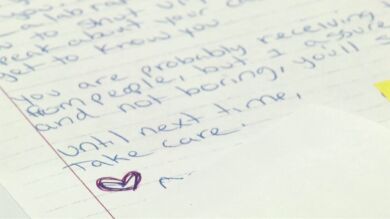 you
a lab ra
to shut
peak about your c
get to know you
You are probably receiving
from people, but I assure
and not boring, you'll
Until next time,
Take care.